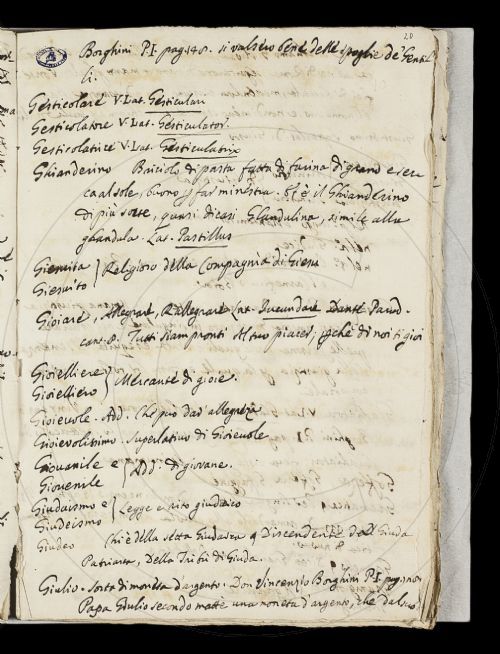 20
Borghini P.I pag. 148. si valsero bene delle spoglie de' Gentili
li.
Gesticolare V. Lat. Gesticulari
Gesticolatore V. Lat. Gesticulator.
Gesticolatrice V. Lat. Gesticulatrix
Ghianderino Briciolo di pasta fatta di farina di grano e sec
ca al sole, buono p far minestra. Et è il Ghianderino
di più sorte, quasi dicasi Glandulina, simile alla
ghandula. Lat. Pastillus
Giesuita
Giesuito } Religioso della Compagnia di Giesu
Gioiare, Allegrare, Rallegrare Lat. Iucundare Dante Parad.
cant. 8. Tutti siam pronti Al tuo piacer, pche di noi ti gioi
Gioielliere
Gioielliero } Mercante di gioie.
Gioievole. Add. Che può dar allegrezza
Gioievolissimo. Superlativo di Gioievole
Giovanile e
Giovenile } Add. di giovane.
Giudaismo e
Giudeismo } Legge e rito giudaico
Giudeo Chi è della setta Giudaica o Discendente del Giuda
Patriarca, Della Tribù di Giuda.
Giulio. Sorta di moneta d'argento. Don Vincenzo Borghini P.I. pag.
Papa Giulio secondo mette una moneta d'argento, che dal suo